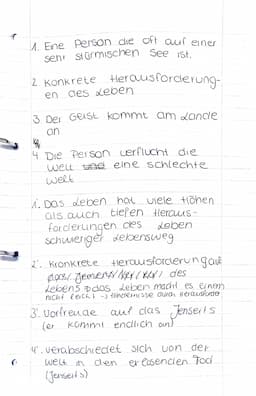 1. Eine Person die oft auf einer
sehr stürmischen See ist.
2. Konkrete Herausforderung-
en des Leben
3 Der Geist kommt am Lande
an
4 Die Person verflucht die
Welt und eine schlechte
Welt
1. Das Leben hat viele Höhen
als auch tiefen Heraus-
forderungen des Leben
schwieriger Lebensweg
2'. Kronkrete Herausforderung
des
Lebens das Leben macht es einem
nicht leicht) -> Hindernisse durch
3'. Vorfreude auf das Jenseits
(er kommt endlich an)
4'. verabschiedet sich von der
Welt in den erlösenden Tod
(Jenseits)